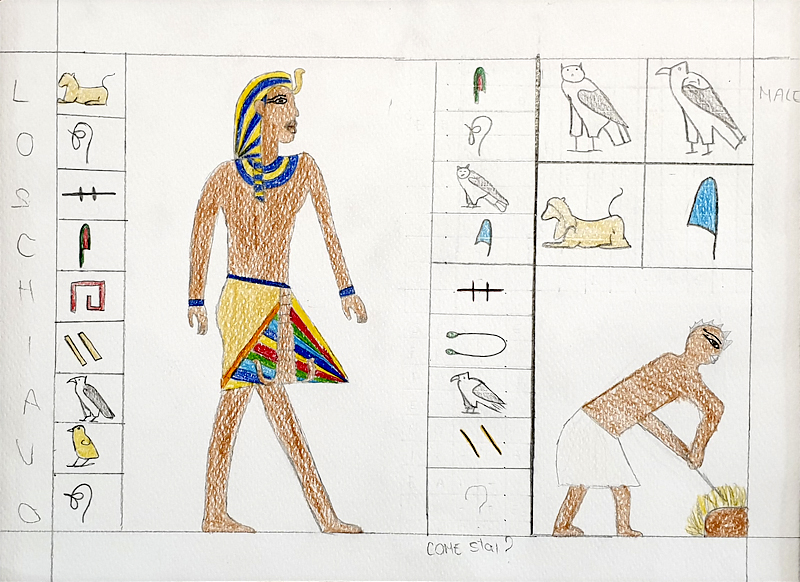 LOSCHIAVO
MALE
COME stai?